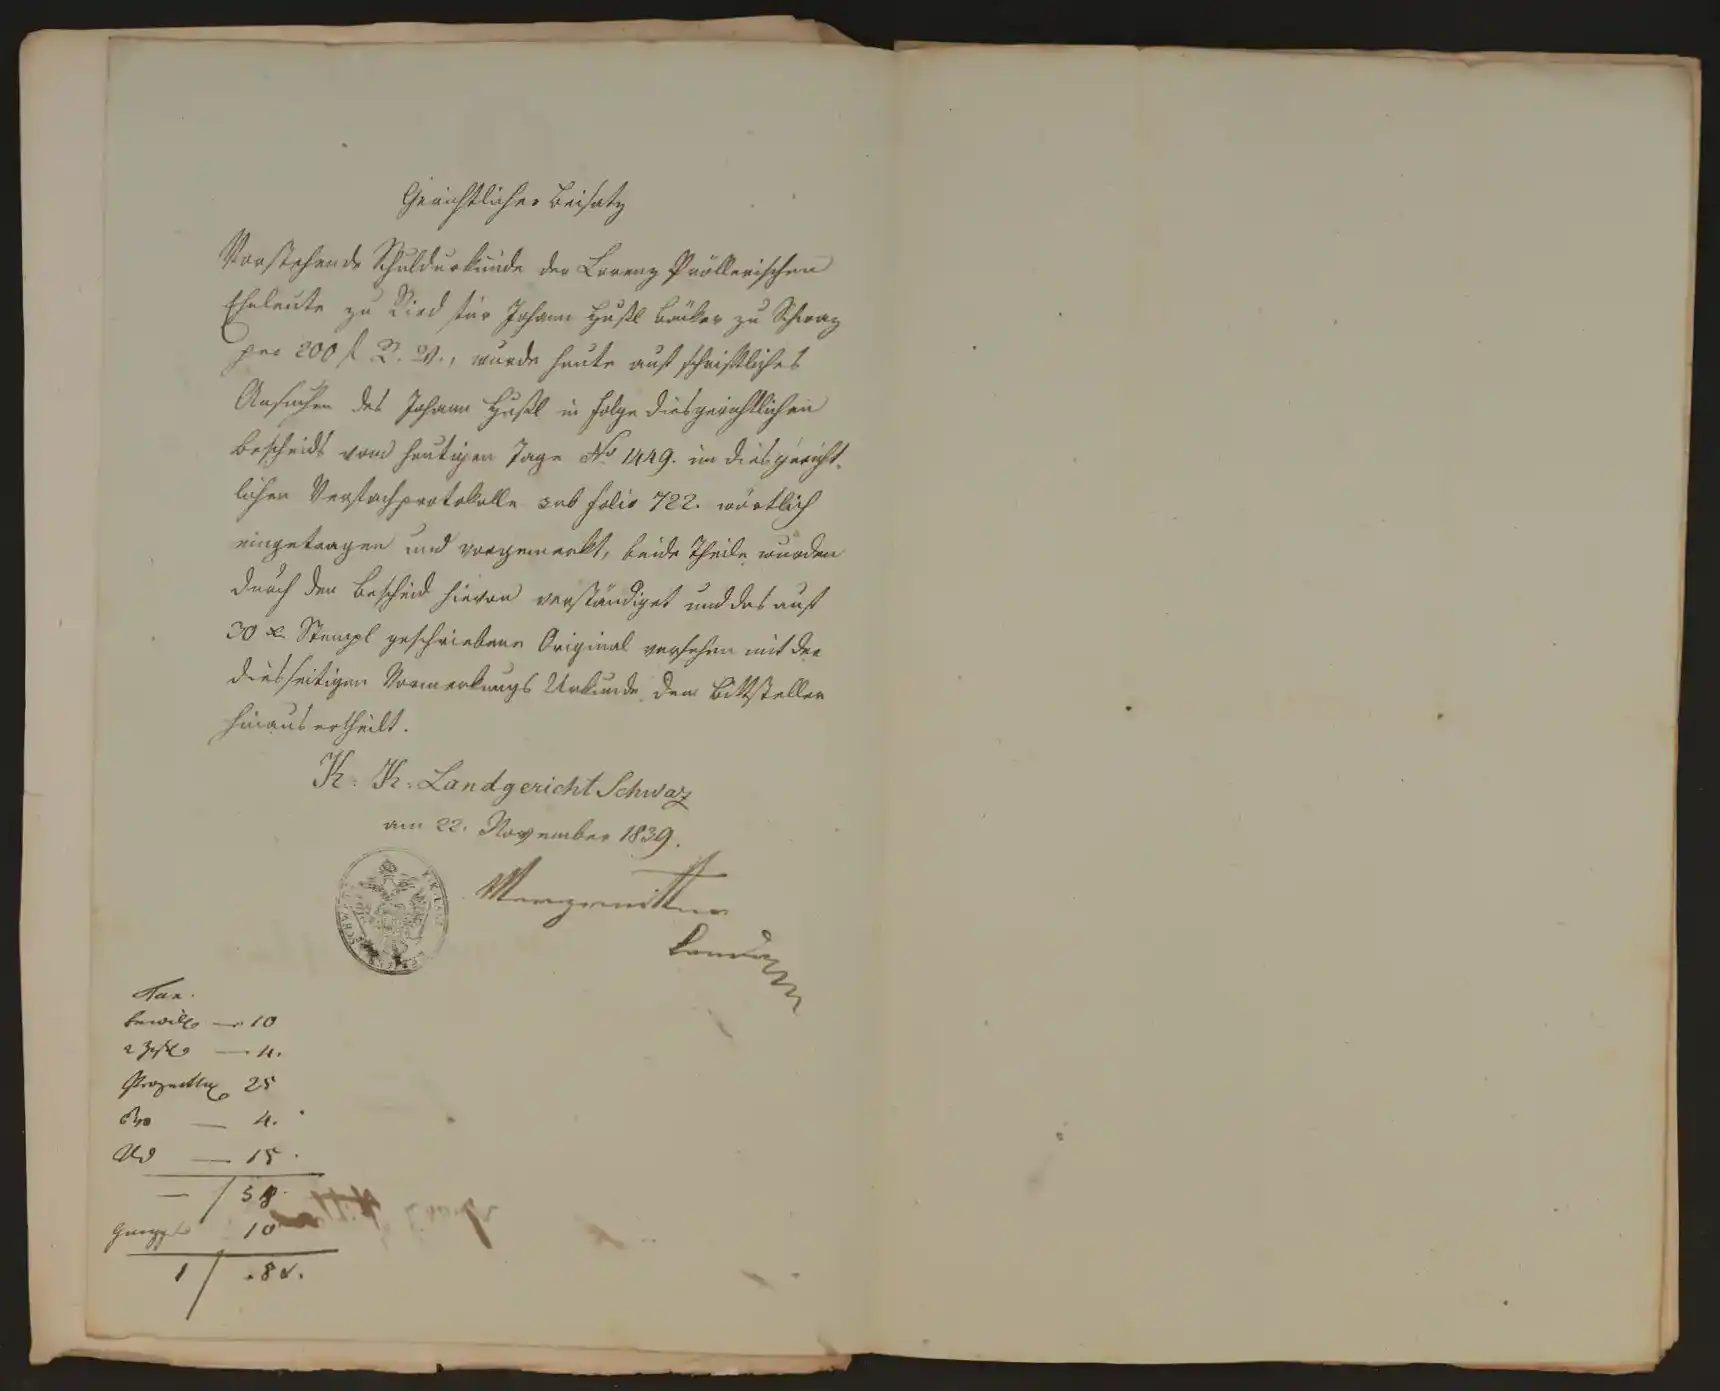 Gerichtlicher Beisatz
Vorstehende Schuldurkunde der Lorenz Pröllerischen
Eheleute zu Ried für Johann Hußl Bäcker zu Schwaz
per 200 f R. W., wurde heute auf schriftliches
Ansuchen des Johann Hußl in Folge diesgerichtlichen
Bescheids vom heutigen Tage No 1449. im diesgericht-
lichen Verfachprotokolle sub folio 722. wörtlich
eingetragen und vorgemerkt, beide Theile wurden
durch den Bescheid hievon verständiget und das auf
30 x Stempl geschriebene Original versehen mit der
diesseitigen Vormerkungs Urkunde dem Bittsteller
hinaus ertheilt.
K: K: Landgericht Schwaz
am 22. November 1839.
Tax.
— 10
2 — 4.
25
— 4.
— 15.
— / 58
10
1 / 8 x.